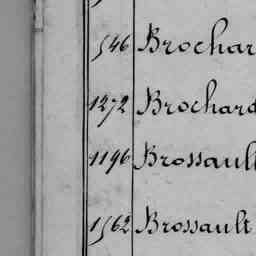 546 Brochar
1272 Brochard
1196 Brossault
1562 Brossault